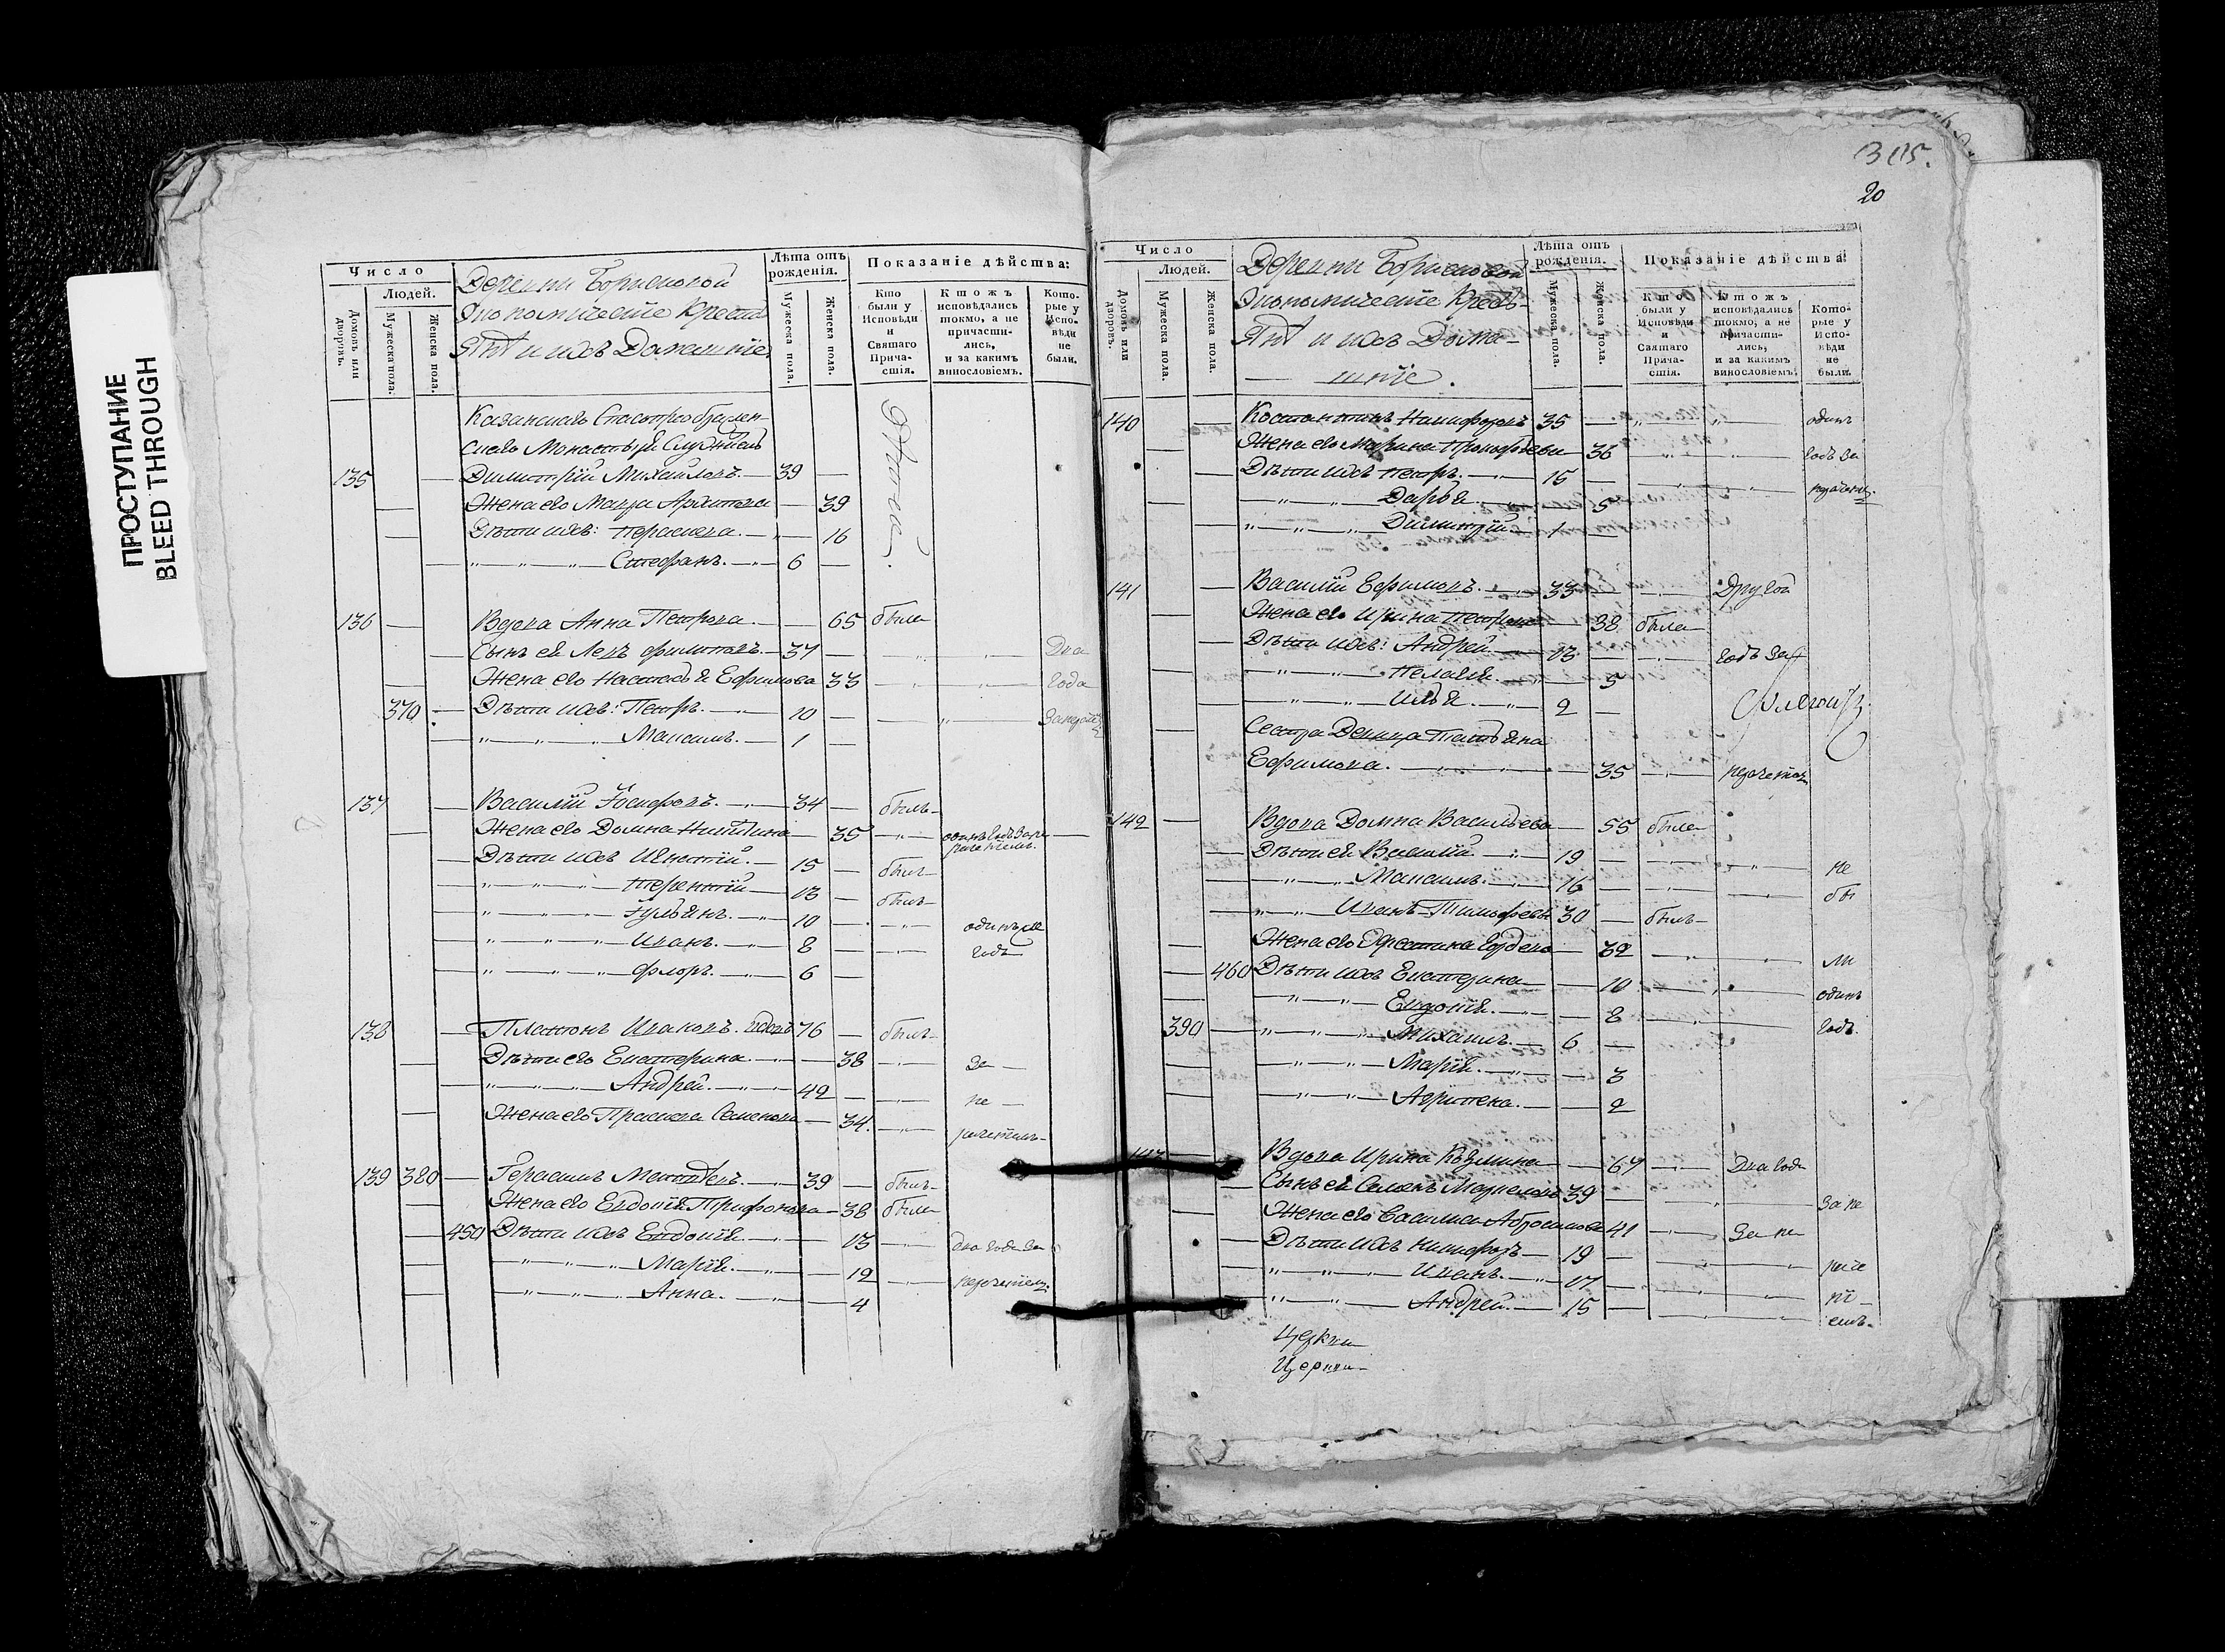 ПРОСТУПАНИЕ
BLEED THROUGH
Число
Людей.
Домовъ или дворовъ.
Мужеска пола.
Женска пола.
Деревни Борисовой
Экономическіе Крестья
янѣ и ихъ Домашніе
Лѣта отъ рожденія.
Мужеска пола.
Женска пола.
Показаніе дѣйства:
Кто были у Исповѣди и Святаго Причастія.
Ктожъ исповѣдались токмо, а не причастились, и за какимъ винословіемъ.
Которые у Исповѣди не были.
Казанскаго
Монастыря
135 Димитрій Михайловъ. 39
Жена его 39
Дѣти ихъ: Параскева. 16
Стефанъ. 6
136 Вдова Анна Петрова. 65 была
Сынъ ея Левъ Филиповъ. 37 Два
Жена его Настасья Ефимова 33 года
370 Дѣти ихъ: Петръ. 10
Максимъ. 1
137 Василій Іосифовъ. 34 былъ
Жена его Домна Никитина 35
Дѣти ихъ Игнатій. 15 былъ
Терентій 13 былъ
Гульянъ. 10 одинъ
Иванъ. 8 годъ
Флоръ. 6
138 Платонъ Ивановъ. вдовъ 76 былъ
Дѣти его Екатерина. 38 За
Андрей. 42 не
Жена его Прасковa Семенова 34 раченіемъ
139 380 Герасимъ Матвѣевъ. 39 былъ
Жена его Евдокія Трифонова 38 была
450 Дѣти ихъ Евдокія. 13 два года за
Марія. 12 нераченіемъ
Анна. 4
305.
20
Число
Людей.
Домовъ или дворовъ.
Мужеска пола.
Женска пола.
Деревни Борисовой
Экономическіе Кресть-
янѣ и ихъ Дома-
шніе.
Лѣта отъ рожденія.
Мужеска пола.
Женска пола.
Показаніе дѣйства:
Кто были у Исповѣди и Святаго Причастія.
Ктожъ исповѣдались токмо, а не причастились, и за какимъ винословіемъ.
Которые у Исповѣди не были.
140 Костантинъ Никифоровъ 35 одинъ
Жена его Марина Прокофьева 36 годъ за
Дѣти ихъ Петръ. 15
Дарья. 5
Димитрій. 1
141 Василій Ефимовъ. 33 Другой
Жена его Ирина Петрова 38 была
Дѣти ихъ: Андрей 13 годъ за
Пелагія. 5
Илья. 2
Сестра Девица Татьяна
Ефимова. 35
142 Вдова Домна Васильева 55 была
Дѣти ея Василій. 19 не
Максимъ. 16 бы
Иванъ Тимофеевъ 30 былъ
Жена его 32 ли
460 Дѣти ихъ Екатерина 10 одинъ
Евдокія. 8 годъ.
390 Михаилъ. 6
Марія. 3
Агрипена. 2
Вдова Ирина Козмина 67 Два года
Сынъ ея 39 За не
Жена его Василиса Абросимова 41 За не
Дѣти ихъ Никифоръ 19 раче
Иванъ. 17 ні
Андрей. 15 емъ.
Церкви
Церкви